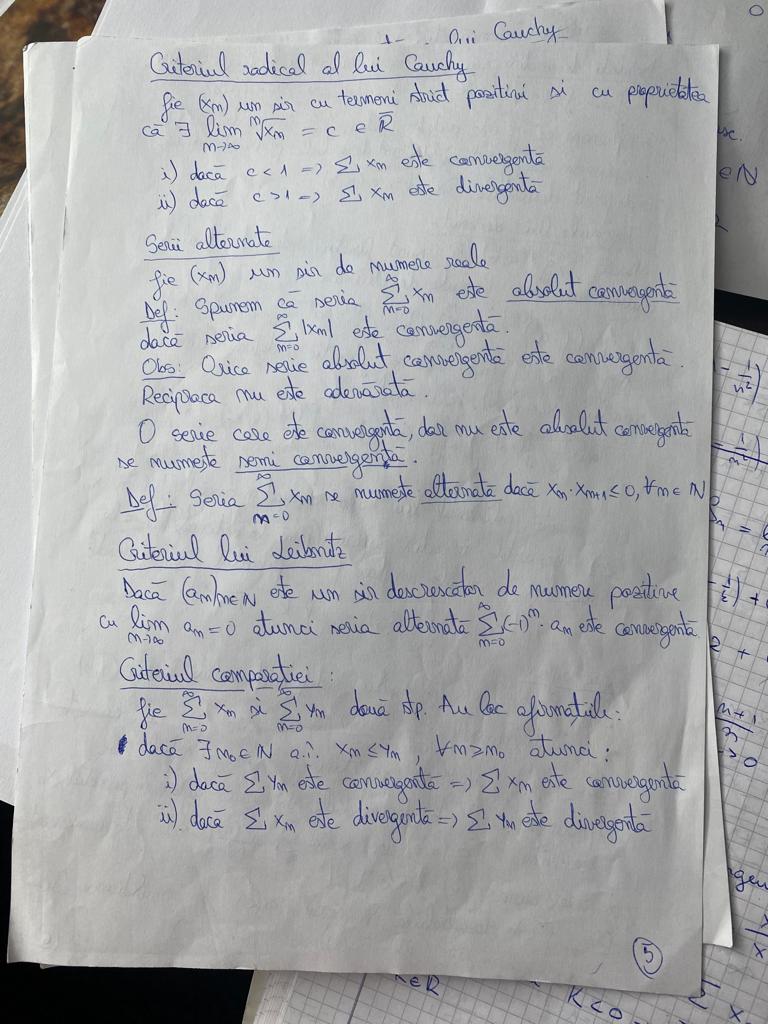 Criteriul radical al lui Cauchy
fie (xₙ) un sir cu termeni strict pozitivi si cu proprietatea
că ∃ lim n→∞ ⁿ√xₙ = c ∈ R̄
i) dacă c < 1 => ∑ xₙ este convergentă
ii) dacă c > 1 => ∑ xₙ este divergentă
Serii alternate
fie (xₙ) un sir de numere reale
Def: Spunem că seria ∑ n=0 ∞ xₙ este absolut convergentă
dacă seria ∑ n=0 ∞ |xₙ| este convergentă.
Obs: Orice serie absolut convergentă este convergentă.
Reciproca nu este adevărată.
O serie care este convergentă, dar nu este absolut convergentă
se numește semi convergentă.
Def: Seria ∑ n=0 ∞ xₙ se numește alternată dacă xₙ·xₙ₊₁ ≤ 0, ∀n ∈ N
Criteriul lui Leibnitz
Dacă (aₙ)n∈N este un sir descrescător de numere pozitive
cu lim n→∞ aₙ = 0 atunci seria alternată ∑ n=0 ∞ (-1)ⁿ· aₙ este convergentă
Criteriul comparației:
fie ∑ n=0 ∞ xₙ si ∑ n=0 ∞ yₙ două stp. Au loc afirmațiile:
dacă ∃ n₀ ∈ N a.î. xₙ ≤ yₙ, ∀n ≥ n₀ atunci:
i) dacă ∑ yₙ este convergentă => ∑ xₙ este convergentă
ii) dacă ∑ xₙ este divergentă => ∑ yₙ este divergentă
5
Cauchy
∈ N
n+1
K<0